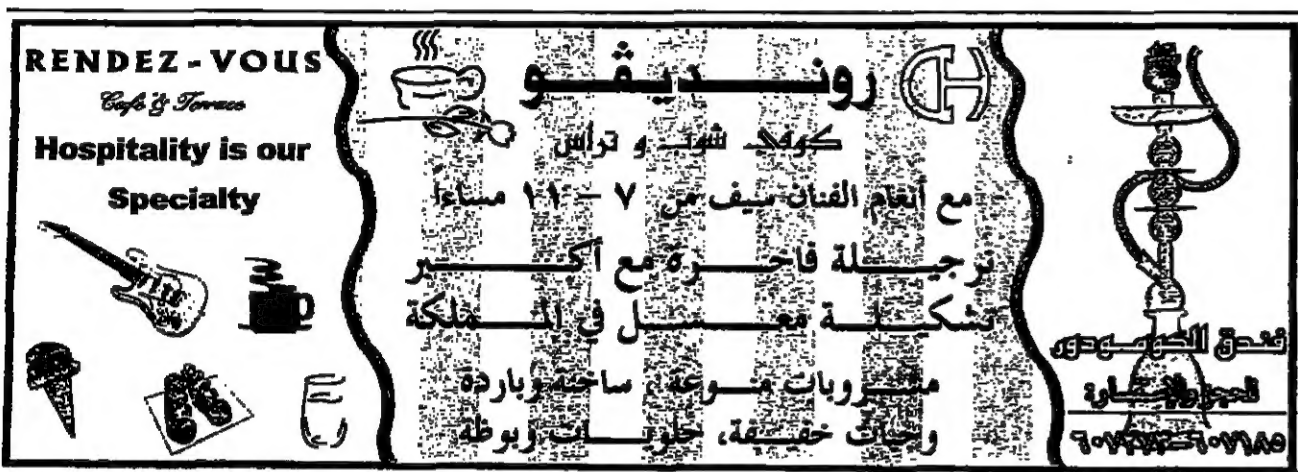 RENDEZ-VOUS
Café & Terrace
Hospitality is our
Specialty
رونديڤو
كوفي شوب و تراس
مع أنغام الفنان سيف من ٧ - ١١ مساءا
نرجيلة فاخره مع أكبر
تشكيلة معسل في المملكة
مشروبات منوعة، ساخنه وبارده
وجبات خفيفة، حلويات وبوظه
فندق الكومودور
للحجز والإستشارة